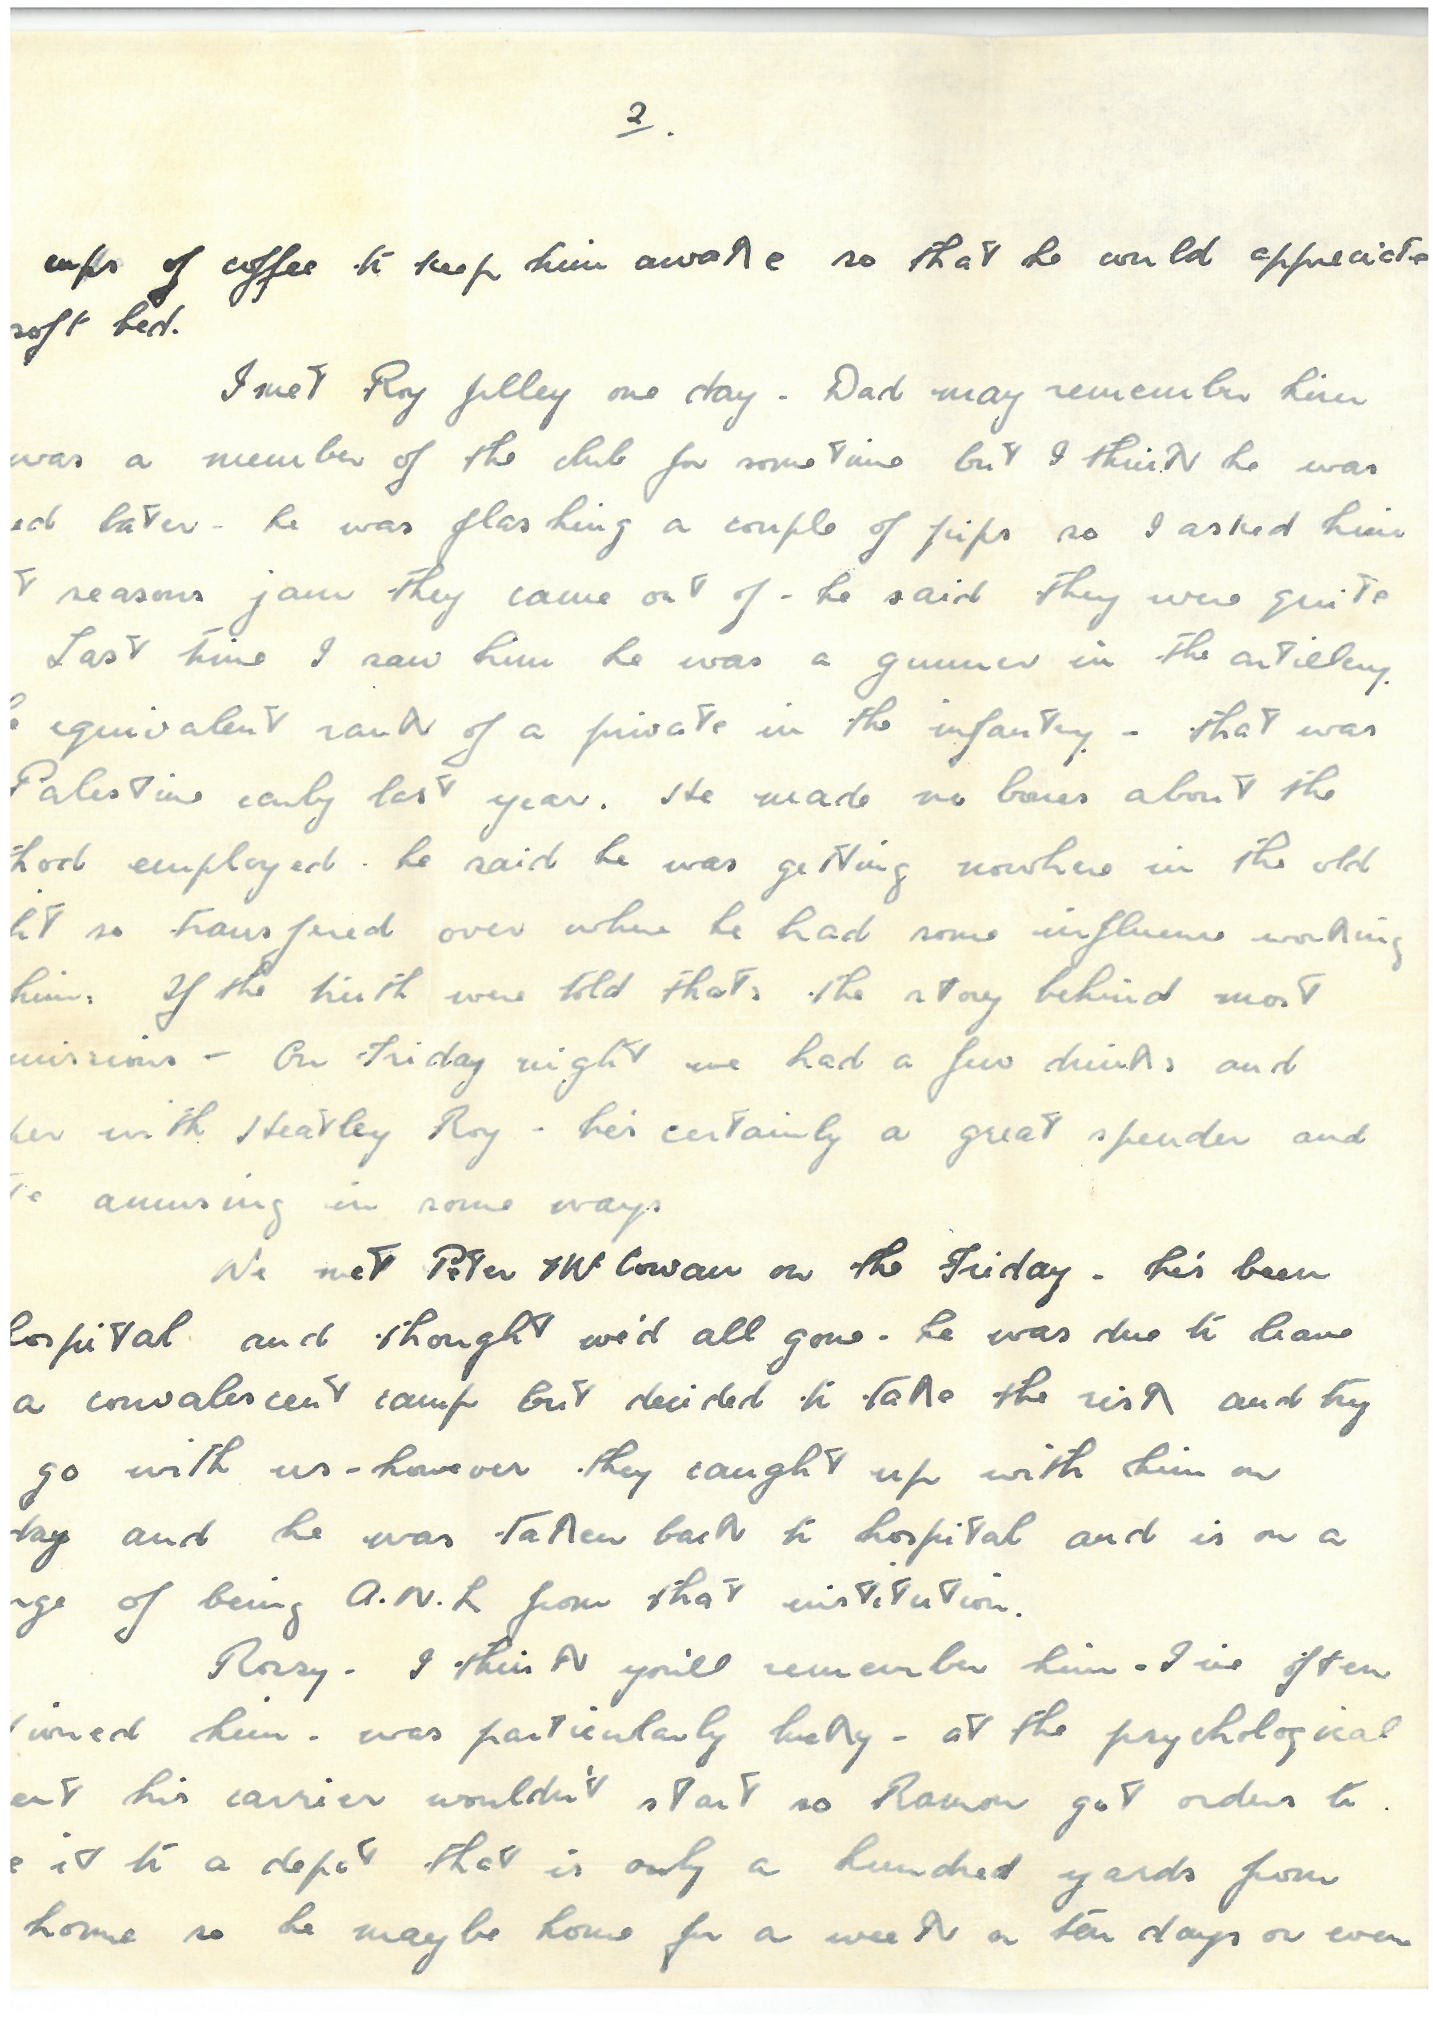 2.
cups of coffee to keep him awake so that he would appreciate
soft bed.
I met Roy Jilley one day - Dad may remember him
was a member of the club for sometime but I think he was
ed later - he was flashing a couple of pips so I asked him
t seasons jam they came out of - he said they were quite
Last time I saw him he was a gunner in the artillery.
e equivalent rank of a private in the infantry - that was
Palestine early last year. He made no bones about the
thod employed - he said he was getting nowhere in the old
ht so transfered over where he had some influence working
him. If the truth were told thats the story behind most
missions - On Friday night we had a few drinks and
er with Heatley Roy - he's certainly a great spender and
te amusing in some ways
We met Peter McCowan on the Friday - he's been
hospital and thought we'd all gone - he was due to leave
a convalescent camp but decided to take the risk and try
go with us - however they caught up with him on
day and he was taken back to hospital and is on a
rge of being A.W.L from that institution.
Rossy - I think you'll remember him - I've often
tioned him - was particularly lucky - at the psychological
ent his carrier wouldn't start so Ramon got orders to
e it to a depot that is only a hundred yards from
home so he maybe home for a week or ten days or even